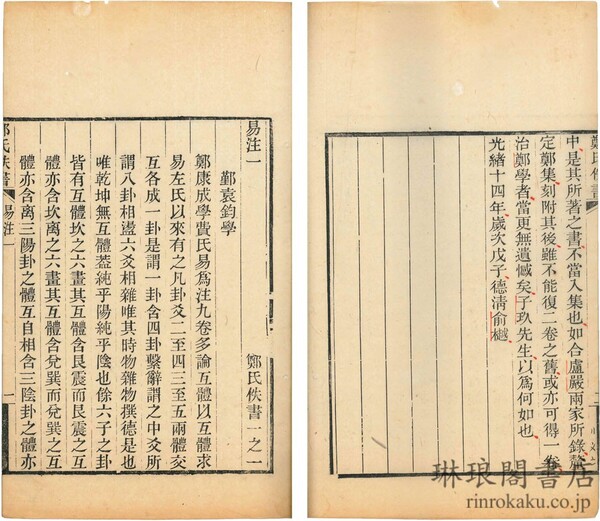 中是其所著之書不當入集也如合盧嚴兩家所錄釐
定鄭集刻附其後雖不能復二卷之舊或亦可得一卷
治鄭學者當更無遺憾矣子玖先生以為何如也
光緒十四年歲次戊子德清俞樾
鄭氏佚書
易注一 鄭氏佚書一之一
鄞袁鈞學
鄭康成學費氏易為注九卷多論互體以互體求
易左氏以來有之凡卦爻二至四三至五兩體交
互各成一卦是謂一卦含四卦繫辭謂之中爻所
謂八卦相盪六爻相雜唯其時物雜物撰德是也
唯乾坤無互體蓋純乎陽純乎陰也餘六子之卦
皆有互體坎之六畫其互體含艮震而艮震之互
體亦含坎離之六畫其互體含兌巽而兌巽之互
體亦含離三陽卦之體互自相含三陰卦之體亦
鄭氏佚書 易注一 一
琳琅閣書店
rinrokaku.co.jp